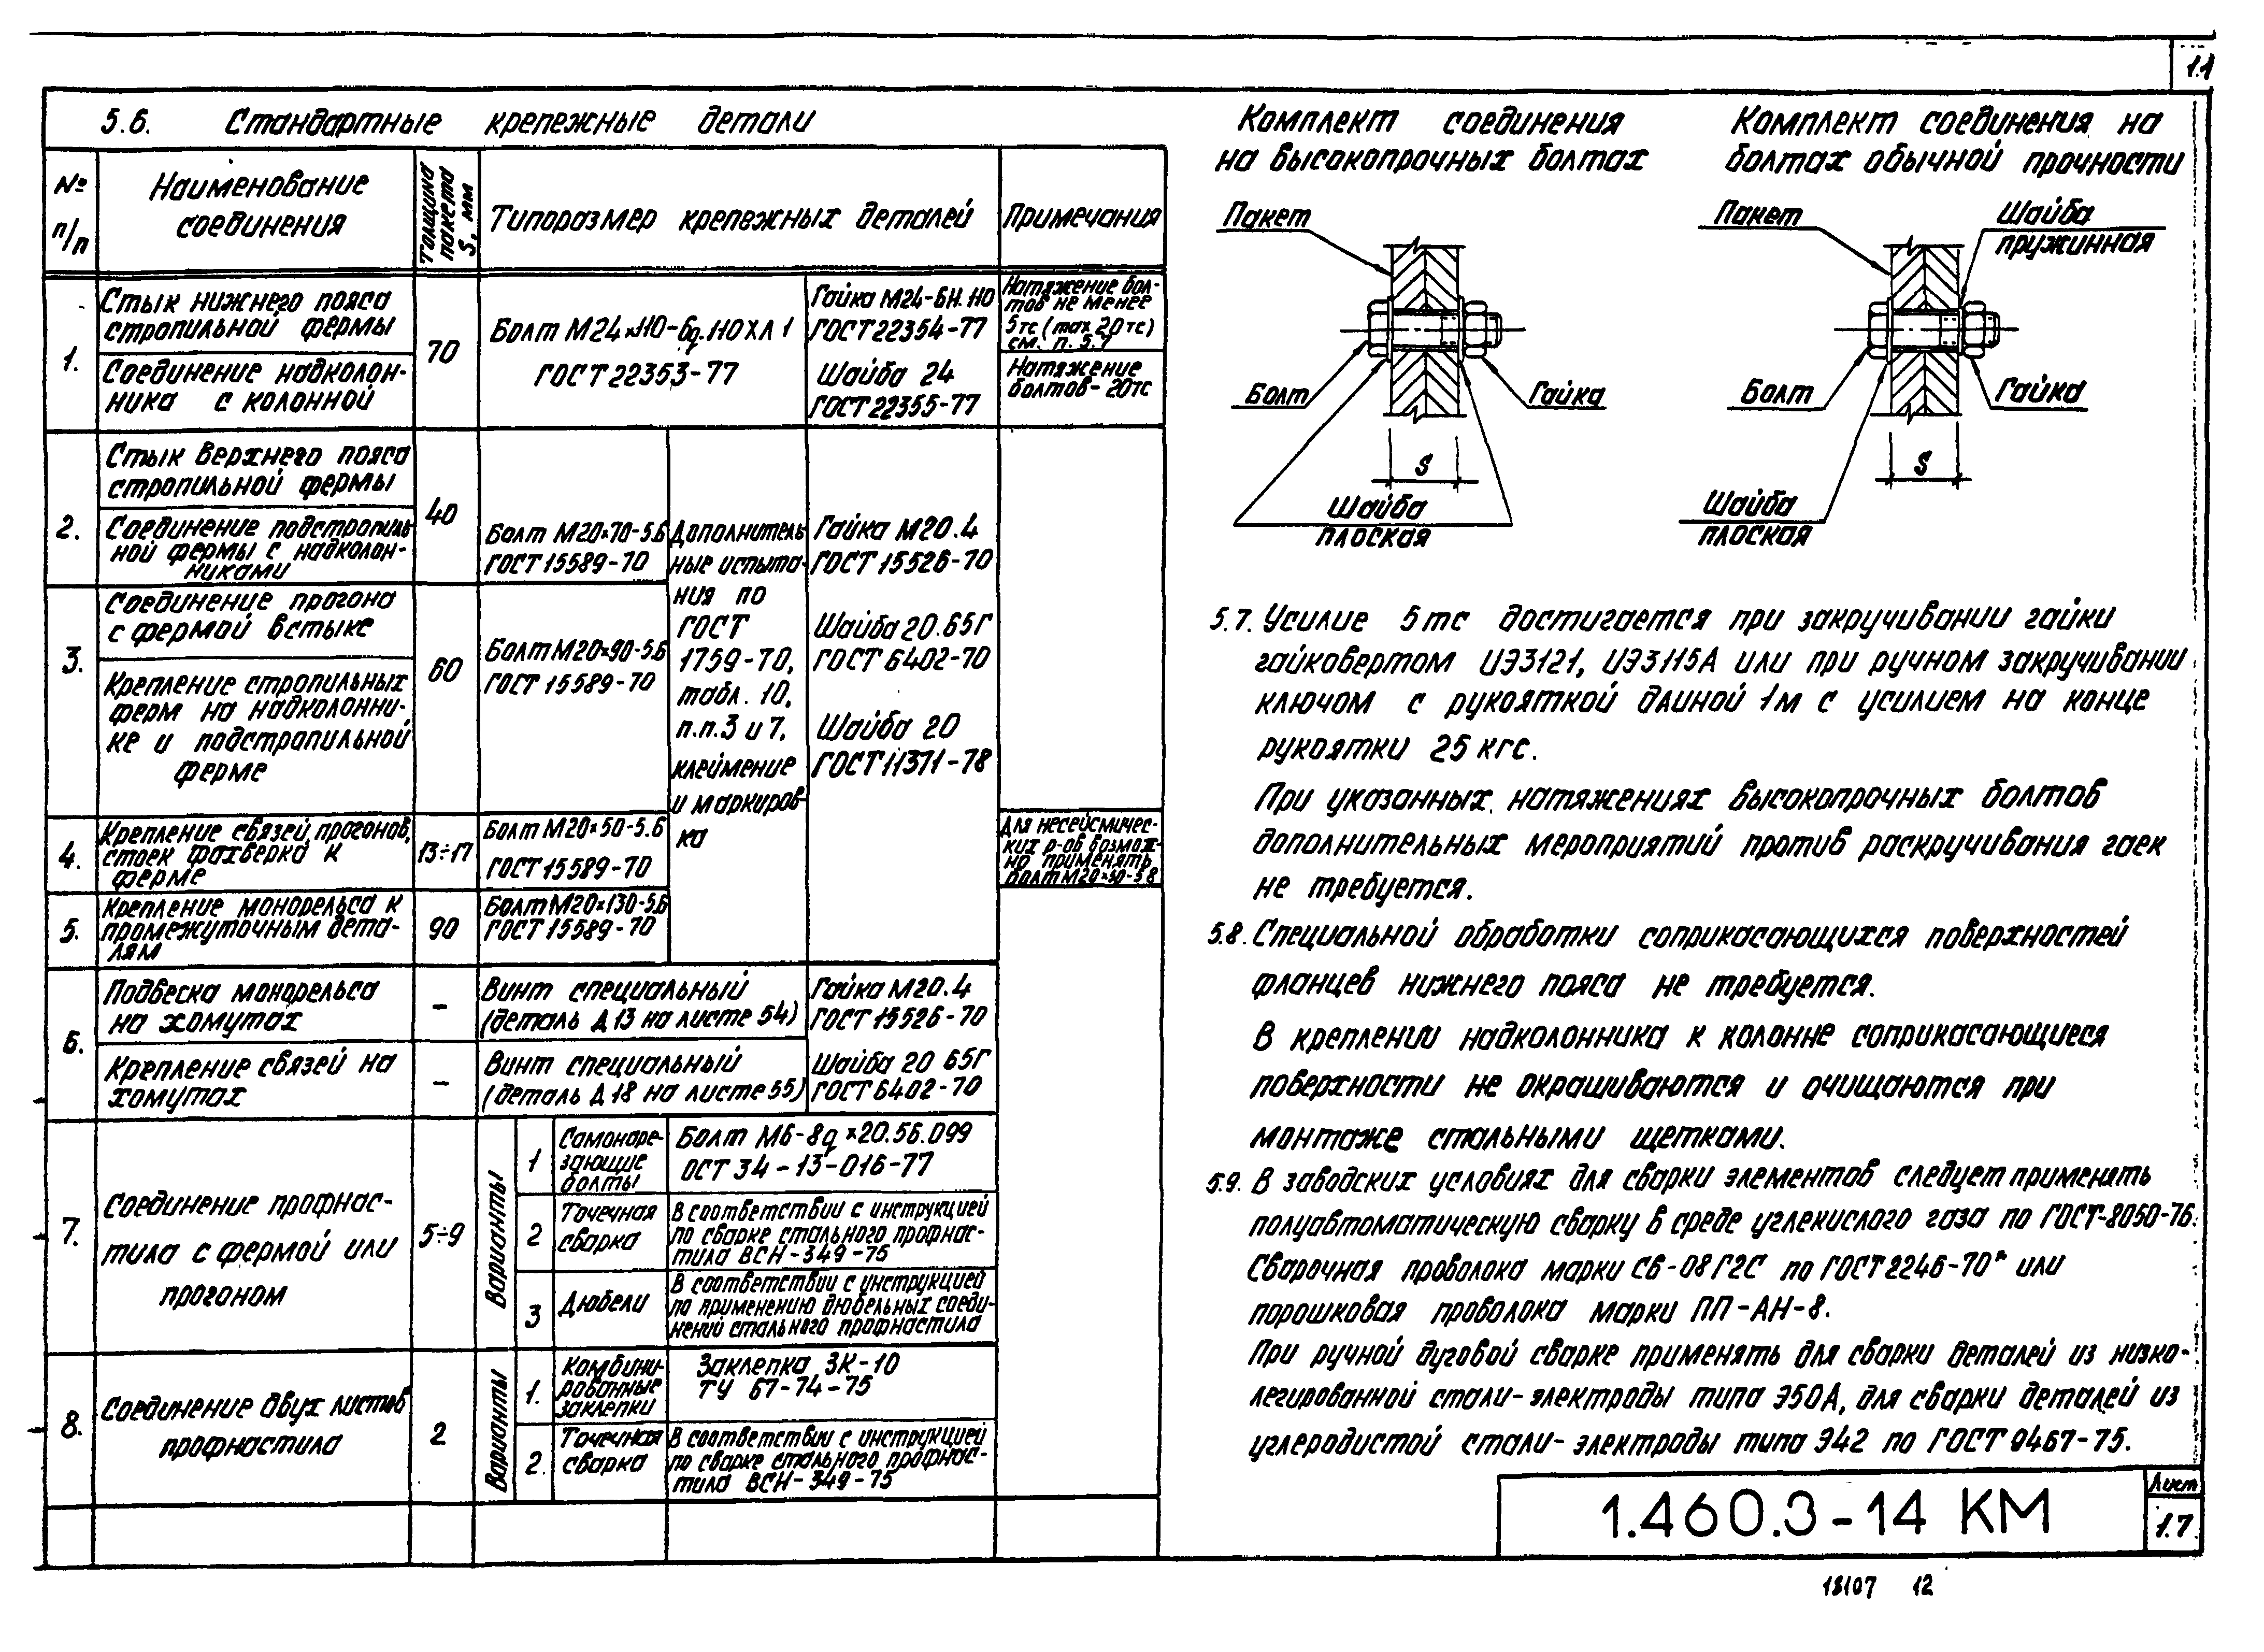 11
5.6. Стандартные крепежные детали
№ п/п
Наименование
соединения
Толщина
пакета
S, мм
Типоразмер крепежных деталей
Примечания
1.
Стык нижнего пояса
стропильной фермы
Соединение надколон-
ника с колонной
70
Болт М24×110-6g.110ХЛ 1
ГОСТ 22353-77
Гайка М24-6Н.110
ГОСТ 22354-77
Шайба 24
ГОСТ 22355-77
Натяжение бол-
тов не менее
5тс (max 20тс)
см. п. 5.7
Натяжение
болтов- 20тс
2.
Стык верхнего пояса
стропильной фермы
Соединение подстропиль
ной фермы с надколон-
никами
40
Болт М20×70-5.6
ГОСТ 15589-70
Дополнитель
ные испыта-
ния по
ГОСТ
1759-70,
табл. 10,
п.п.3 и 7,
клеймение
и маркиров-
ка
Гайка М20.4
ГОСТ 15526-70
Шайба 20.65Г
ГОСТ 6402-70
Шайба 20
ГОСТ 11371-78
3.
Соединение прогона
с фермой встыке
Крепление стропильных
ферм на надколонни-
ке и подстропильной
ферме
60
Болт М20×90-5.6
ГОСТ 15589-70
4.
Крепление связей, прогонов,
стоек фахверка к
ферме
13÷17
Болт М20×50-5.6
ГОСТ 15589-70
Для несейсмичес-
ких р-ов возмож-
но применять
болт М20×50-5.8
5.
Крепление монорельса к
промежуточным дета-
лям
90
Болт М20×130-5.6
ГОСТ 15589-70
6.
Подвеска монорельса
на хомутах
-
Винт специальный
(деталь Д13 на листе 54)
Гайка М20.4
ГОСТ 15526-70
Крепление связей на
хомутах
-
Винт специальный
(деталь Д18 на листе 55)
Шайба 20 65Г
ГОСТ 6402-70
7.
Соединение профнас-
тила с фермой или
прогоном
5÷9
Варианты
1
Самонаре-
зающие
болты
Болт М6-8g×20.56.099
ОСТ 34-13-016-77
2
Точечная
сварка
В соответствии с инструкцией
по сварке стального профнас-
тила ВСН-349-75
3
Дюбели
В соответствии с инструкцией
по применению дюбельных соеди-
нений стального профнастила
8.
Соединение двух листов
профнастила
2
Варианты
1.
Комбини-
рованные
заклепки
Заклепка ЗК-10
ТУ 67-74-75
2.
Точечная
сварка
В соответствии с инструкцией
по сварке стального профнас-
тила ВСН-349-75
Комплект соединения
на высокопрочных болтах
Пакет
Болт
Гайка
S
Шайба
плоская
Комплект соединения на
болтах обычной прочности
Пакет
Шайба
пружинная
Болт
Гайка
S
Шайба
плоская
5.7. Усилие 5тс достигается при закручивании гайки
гайковертом ИЭ3121, ИЭ3115А или при ручном закручивании
ключом с рукояткой длиной 1м с усилием на конце
рукоятки 25 кгс.
При указанных натяжениях высокопрочных болтов
дополнительных мероприятий против раскручивания гаек
не требуется.
5.8. Специальной обработки соприкасающихся поверхностей
фланцев нижнего пояса не требуется.
В креплении надколонника к колонне соприкасающиеся
поверхности не окрашиваются и очищаются при
монтаже стальными щетками.
5.9. В заводских условиях для сварки элементов следует применять
полуавтоматическую сварку в среде углекислого газа по ГОСТ-8050-76.
Сварочная проволока марки СВ-08Г2С по ГОСТ 2246-70* или
порошковая проволока марки ПП-АН-8.
При ручной дуговой сварке применять для сварки деталей из низко-
легированной стали-электроды типа Э50А, для сварки деталей из
углеродистой стали-электроды типа Э42 по ГОСТ 9467-75.
1.460.3-14 КМ
Лист
1.7
18107 12